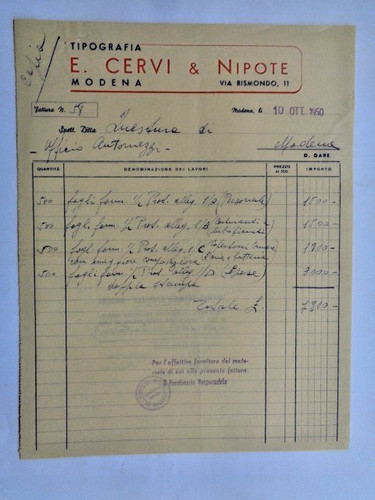 Copia
TIPOGRAFIA
E. CERVI & NIPOTE
MODENA VIA RISMONDO, 11
Fattura N. 58 Modena, li 10 OTT. 1950
Spett. Ditta Questura di
Ufficio Automezzi - Modena
D. DARE
QUANTITÀ DENOMINAZIONE DEI LAVORI PREZZO al 100 IMPORTO
500 fogli form. 1/2 Prot. alleg. 1/A (Personale) 1500 -
500 fogli form. 1/2 Prot. alleg. 1/B 1500 -
500 fogl. form. 1/2 Prot. alleg. 1/C
con maggiore composizione
500 fogli form. 1/2 Prot. alleg. 1/D (Spese)
doppia stampa
Totale £.
Per l'effettiva fornitura del mate-
riale di cui alla presente fattura.
Il Funzionario Responsabile